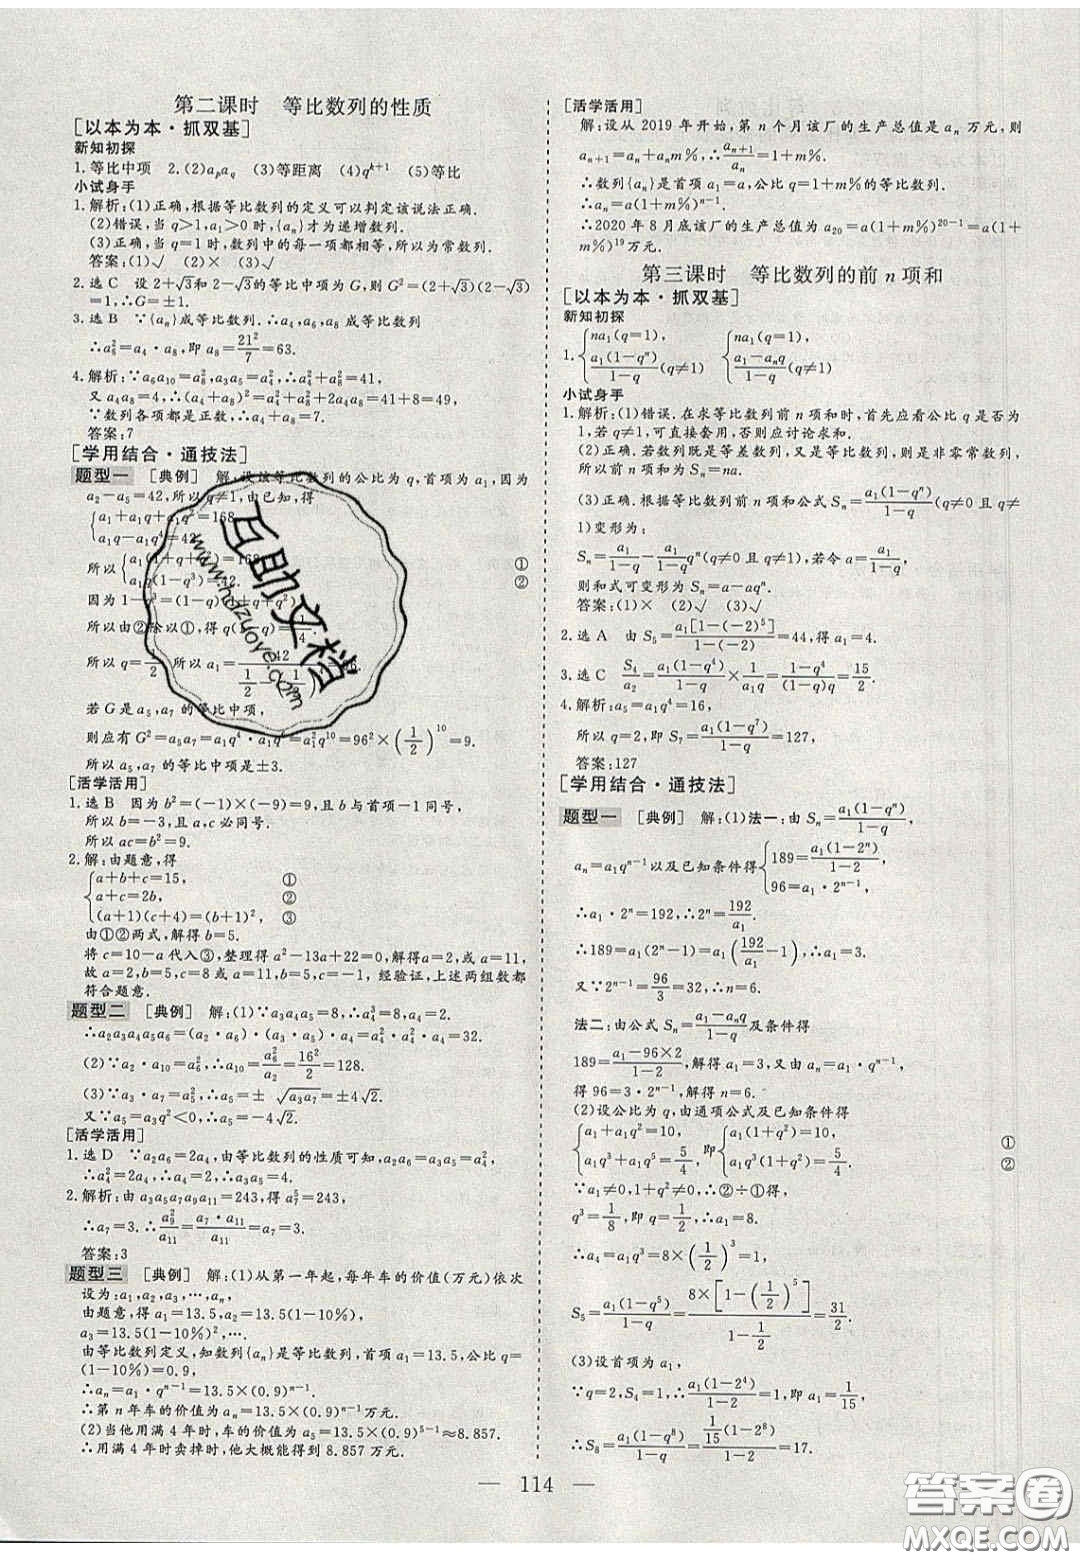 第二课时　等比数列的性质
[以本为本·抓双基]
新知初探
1.等比中项　2.(2)aₚa_q　(3)等距离　(4)q^{k+1}　(5)等比
小试身手
1.解析:(1)正确,根据等比数列的定义可以判定该说法正确.
(2)错误,当 q>1,a₁>0 时,{aₙ}才为递增数列.
(3)正确,当 q=1 时,数列中的每一项都相等,所以为常数列.
答案:(1)√　(2)×　(3)√
2.选 C　设 2+√3和 2−√3的等比中项为 G,则 G²=(2+√3)(2−√3)
=1,∴G=±1.
3.选 B　∵{aₙ}成等比数列.∴a₄,a₆,a₈ 成等比数列
∴a₆²=a₄·a₈,即 a₈=21²/7=63.
4.解析:∵a₆a₁₀=a₈²,a₃a₅=a₄²,∴a₄²+a₈²=41,
又 a₄a₈=4,∴(a₄+a₈)²=a₄²+a₈²+2a₄a₈=41+8=49.
∵数列各项都是正数,∴a₄+a₈=7.
答案:7
[学用结合·通技法]
题型一　[典例]　解:设该等比数列的公比为 q,首项为 a₁,因为
a₂−a₅=42,所以 q≠1,由已知,得
{a₁+a₁q+a₁q²=168,
a₁q−a₁q⁴=42.
所以{a₁(1+q+q²)=168, ①
a₁q(1−q³)=42. ②
因为 1−q³=(1−q)(1+q+q²)
所以由②除以①,得 q(1−q)=1/4.
所以 q=1/2.所以 a₁=42/(1/2−(1/2)⁴)=96.
若 G 是 a₅,a₇ 的等比中项,
则应有 G²=a₅a₇=a₁q⁴·a₁q⁶=a₁²q¹⁰=96²×(1/2)¹⁰=9.
所以 a₅,a₇ 的等比中项是±3.
[活学活用]
1.选 B　因为 b²=(−1)×(−9)=9,且 b 与首项−1 同号,
所以 b=−3,且 a,c 必同号.
所以 ac=b²=9.
2.解:由题意,得
{a+b+c=15, ①
a+c=2b, ②
(a+1)(c+4)=(b+1)². ③
由①②两式,解得 b=5.
将 c=10−a 代入③,整理得 a²−13a+22=0,解得 a=2,或 a=11,
故 a=2,b=5,c=8或 a=11,b=5,c=−1,经验证,上述两组数都
符合题意.
题型二　[典例]　解:(1)∵a₃a₄a₅=8,∴a₄³=8,a₄=2.
∴a₂a₃a₄a₅a₆=(a₂·a₆)·(a₃·a₅)·a₄=a₄²·a₄²·a₄=32.
(2)∵a₂·a₁₀=a₆²,∴a₁₀=a₆²/a₂=16²/2=128.
(3)∵a₃a₇=a₅²,∴a₅=±√a₃a₇=±4√2.
又∵a₅=a₃q²<0,∴a₅=−4√2.
[活学活用]
1.选 D　∵a₂a₆=2a₄,由等比数列的性质可知,a₂a₆=a₃a₅=a₄²,
∴a₄²=2a₄,∴a₄=2.∴a₃a₅=4.
2.解析:由 a₃a₅a₇a₉a₁₁=243,得 a₇⁵=243,
∴a₇=3.∴a₉²/a₁₁=a₇·a₁₁/a₁₁=a₇=3.
答案:3
题型三　[典例]　解:(1)从第一年起,每年车的价值(万元)依次
设为:a₁,a₂,a₃,…,aₙ,
由题意,得 a₁=13.5,a₂=13.5(1−10%),
a₃=13.5(1−10%)²,….
由等比数列定义,知数列{aₙ}是等比数列,首项 a₁=13.5,公比 q=
(1−10%)=0.9,
∴aₙ=a₁·qⁿ⁻¹=13.5×(0.9)ⁿ⁻¹.
∴第 n 年车的价值为 aₙ=13.5×(0.9)ⁿ⁻¹万元.
(2)当他用满 4 年时,车的价值为 a₅=13.5×(0.9)⁵⁻¹≈8.857.
∴用满 4 年时卖掉时,他大概能得到 8.857 万元.
[活学活用]
解:设从 2019 年开始,第 n 个月该厂的生产总值是 aₙ 万元,则
aₙ₊₁=aₙ+aₙm%,∴aₙ₊₁/aₙ=1+m%.
∴数列{aₙ}是首项 a₁=a,公比 q=1+m%的等比数列.
∴aₙ=a(1+m%)ⁿ⁻¹.
∴2020 年 8 月底该厂的生产总值为 a₂₀=a(1+m%)²⁰⁻¹=a(1+
m%)¹⁹万元.
第三课时　等比数列的前 n 项和
[以本为本·抓双基]
新知初探
1.{na₁(q=1), a₁(1−qⁿ)/(1−q)(q≠1)　{na₁(q=1), (a₁−aₙq)/(1−q)(q≠1)
小试身手
1.解析:(1)错误.在求等比数列前 n 项和时,首先应看公比 q 是否为
1,若 q≠1,可直接套用,否则应讨论求和.
(2)正确.若数列既是等差数列,又是等比数列,则是非零常数列,
所以前 n 项和为 Sₙ=na.
(3)正确.根据等比数列前 n 项和公式 Sₙ=a₁(1−qⁿ)/(1−q)(q≠0 且 q≠
1)变形为:
Sₙ=a₁/(1−q)−a₁/(1−q)qⁿ(q≠0 且 q≠1),若令 a=a₁/(1−q),
则和式可变形为 Sₙ=a−aqⁿ.
答案:(1)×　(2)√　(3)√
2.选 A　由 S₅=a₁[1−(−2)⁵]/(1−(−2))=44,得 a₁=4.
3.选 C　S₄/a₂=a₁(1−q⁴)/(1−q)×1/(a₁q)=(1−q⁴)/((1−q)q)=15/2.
4.解析:a₅=a₁q⁴=16,
∴q=2,即 S₇=a₁(1−q⁷)/(1−q)=127,
答案:127
[学用结合·通技法]
题型一　[典例]　解:(1)法一:由 Sₙ=a₁(1−qⁿ)/(1−q),
aₙ=a₁qⁿ⁻¹以及已知条件得{189=a₁(1−2ⁿ)/(1−2), 96=a₁·2ⁿ⁻¹,
∴a₁·2ⁿ=192,∴2ⁿ=192/a₁.
∴189=a₁(2ⁿ−1)=a₁(192/a₁−1),∴a₁=3.
又∵2ⁿ⁻¹=96/3=32,∴n=6.
法二:由公式 Sₙ=(a₁−aₙq)/(1−q)及条件得
189=(a₁−96×2)/(1−2),解得 a₁=3,又由 aₙ=a₁·qⁿ⁻¹,
得 96=3·2ⁿ⁻¹,解得 n=6.
(2)设公比为 q,由通项公式及已知条件得
{a₁+a₁q²=10, a₁q³+a₁q⁵=5/4, 即{a₁(1+q²)=10, ①
a₁q³(1+q²)=5/4. ②
∵a₁≠0,1+q²≠0,∴②÷①得,
q³=1/8,即 q=1/2,∴a₁=8.
∴a₄=a₁q³=8×(1/2)³=1,
S₅=a₁(1−q⁵)/(1−q)=8×[1−(1/2)⁵]/(1−1/2)=31/2.
(3)设首项为 a₁,
∵q=2,S₄=1,∴a₁(1−2⁴)/(1−2)=1,即 a₁=1/15,
∴S₈=a₁(1−q⁸)/(1−q)=1/15(1−2⁸)/(1−2)=17.
— 114 —
互助文档
www.huzuovue.com
答案圈
MXQE.COM